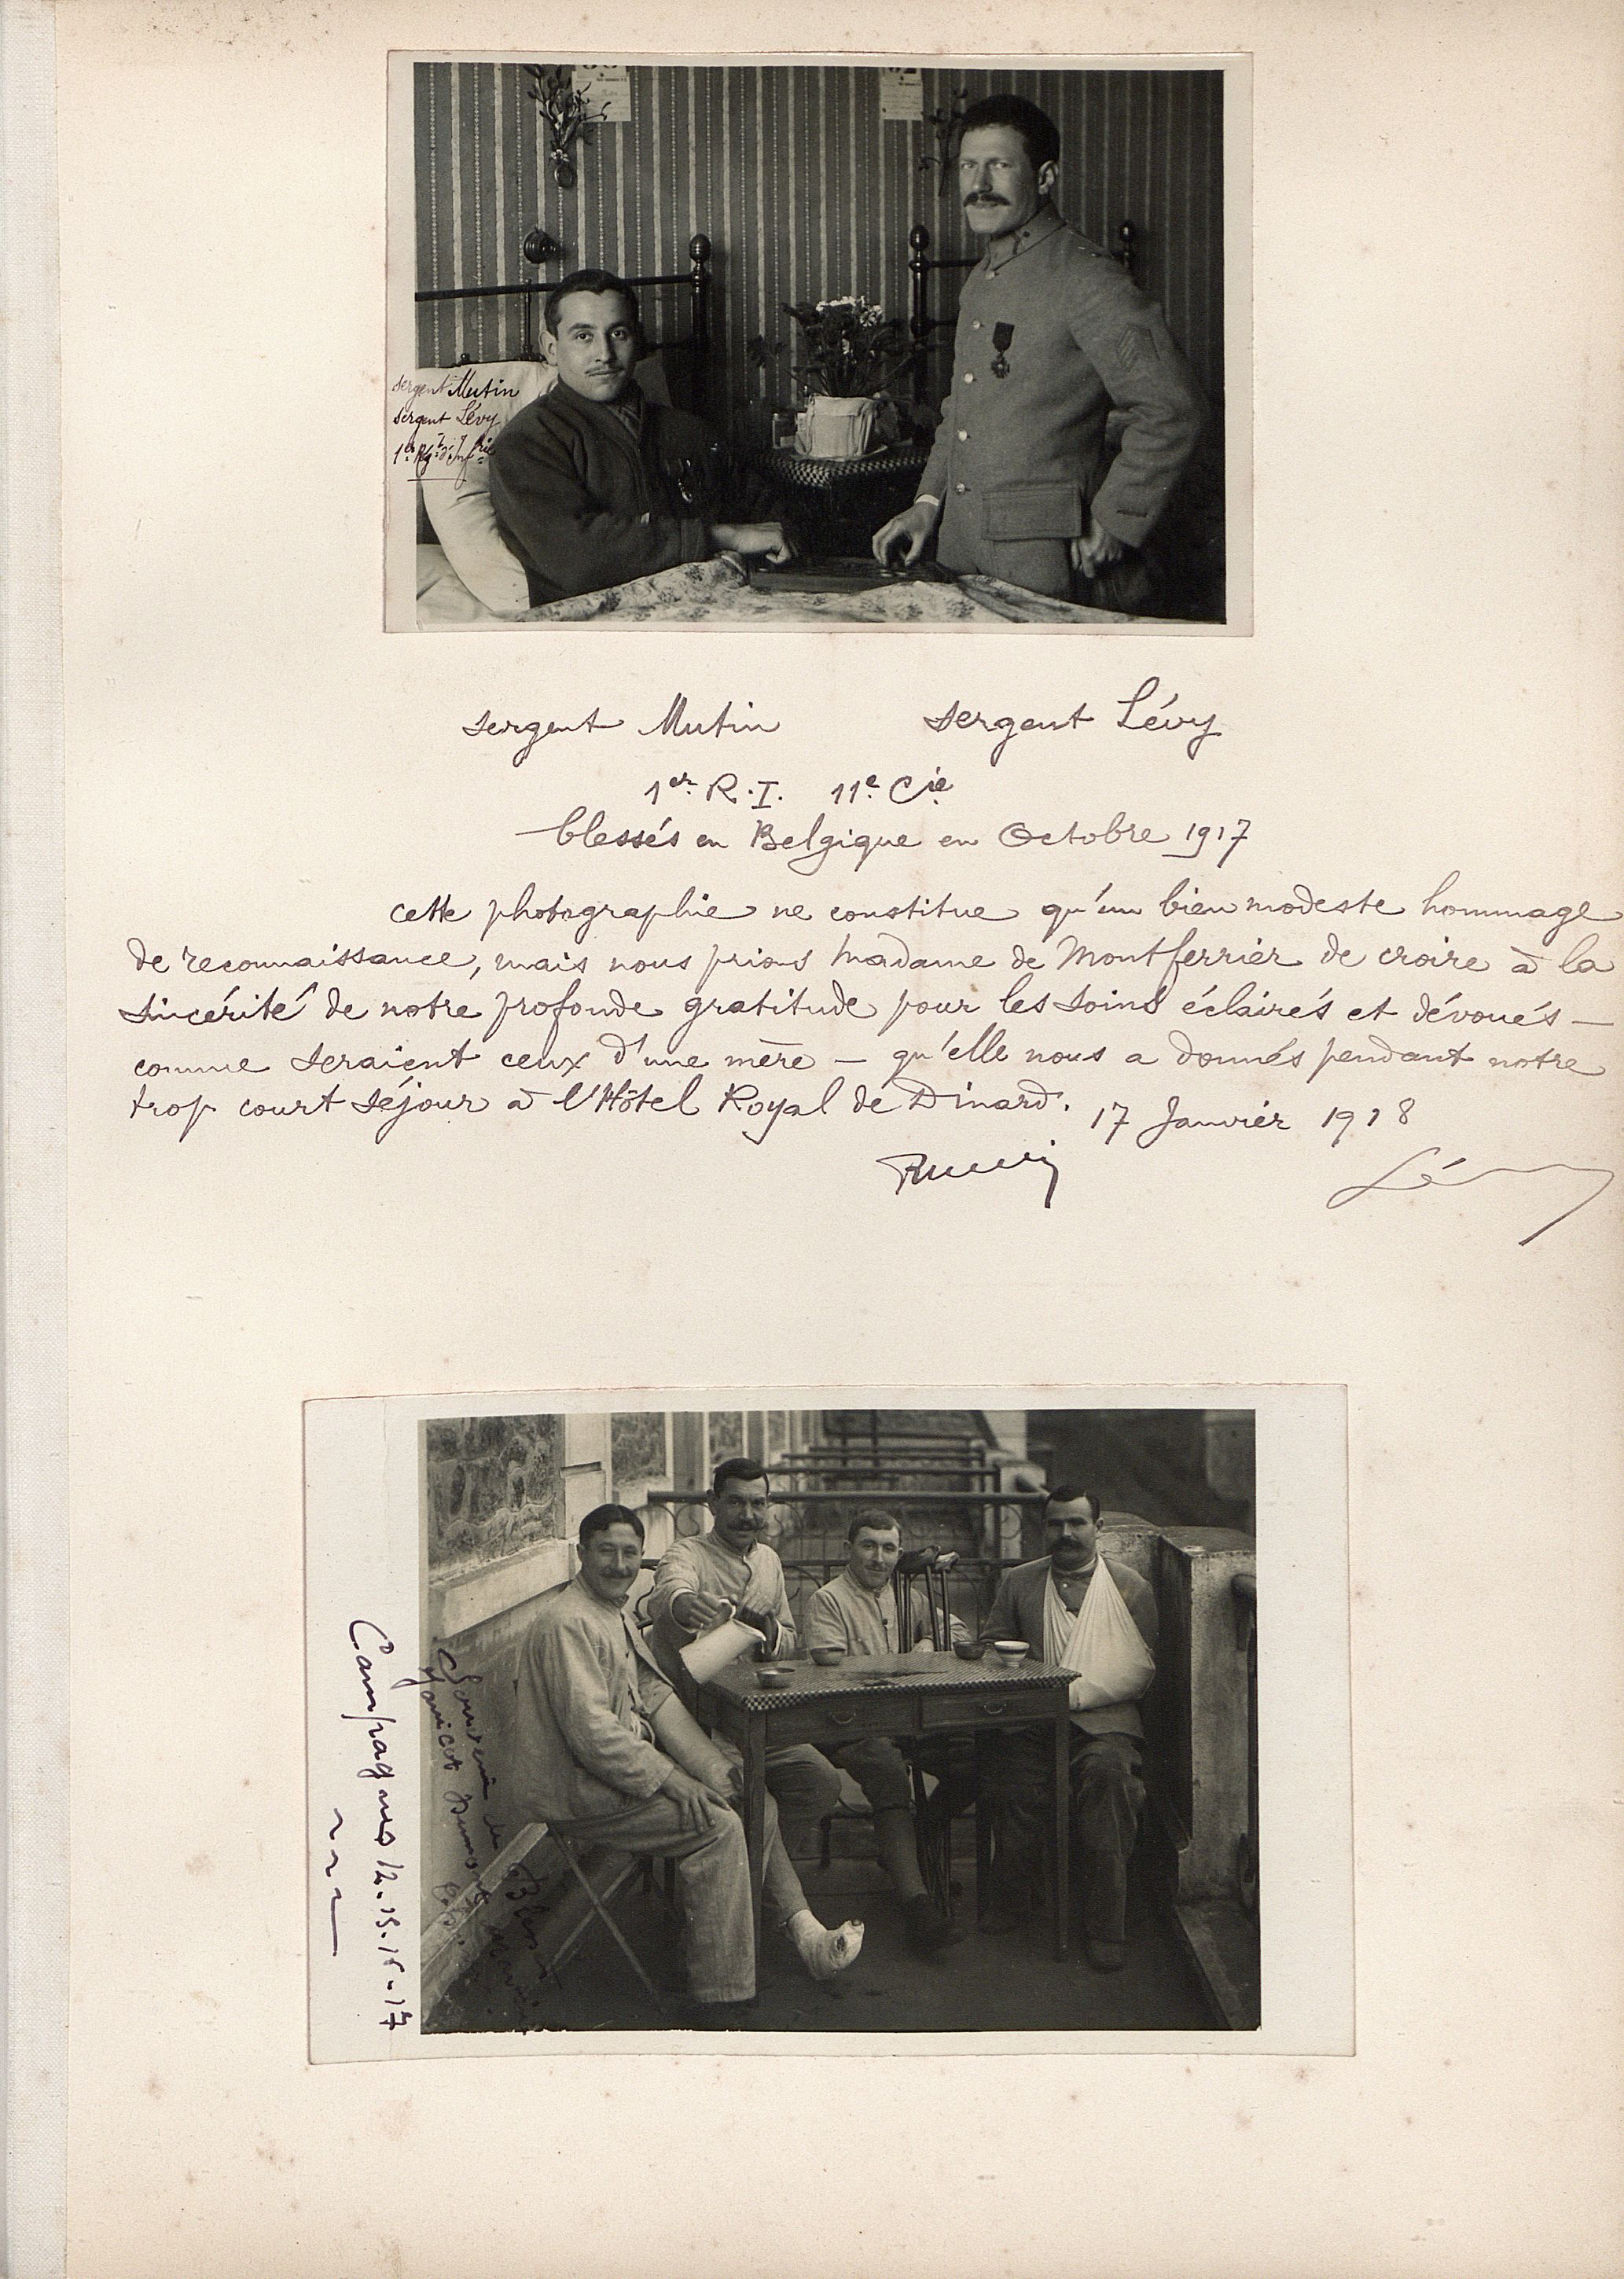 sergent Mutin
sergent Lévy
1er Rgt d'Infrie
sergent Mutin sergent Lévy
1er R.I. 11e Cie
blessés en Belgique en Octobre 1917
cette photographie ne constitue qu'un bien modeste hommage
de reconnaissance, mais nous prions Madame de Montferrier de croire à la
sincérité de notre profonde gratitude pour les soins éclairés et dévoués —
comme seraient ceux d'une mère — qu'elle nous a donnés pendant notre
trop court séjour à l'Hôtel Royal de Dinard.
17 Janvier 1918
Lévy
Souvenir de
Campagnes